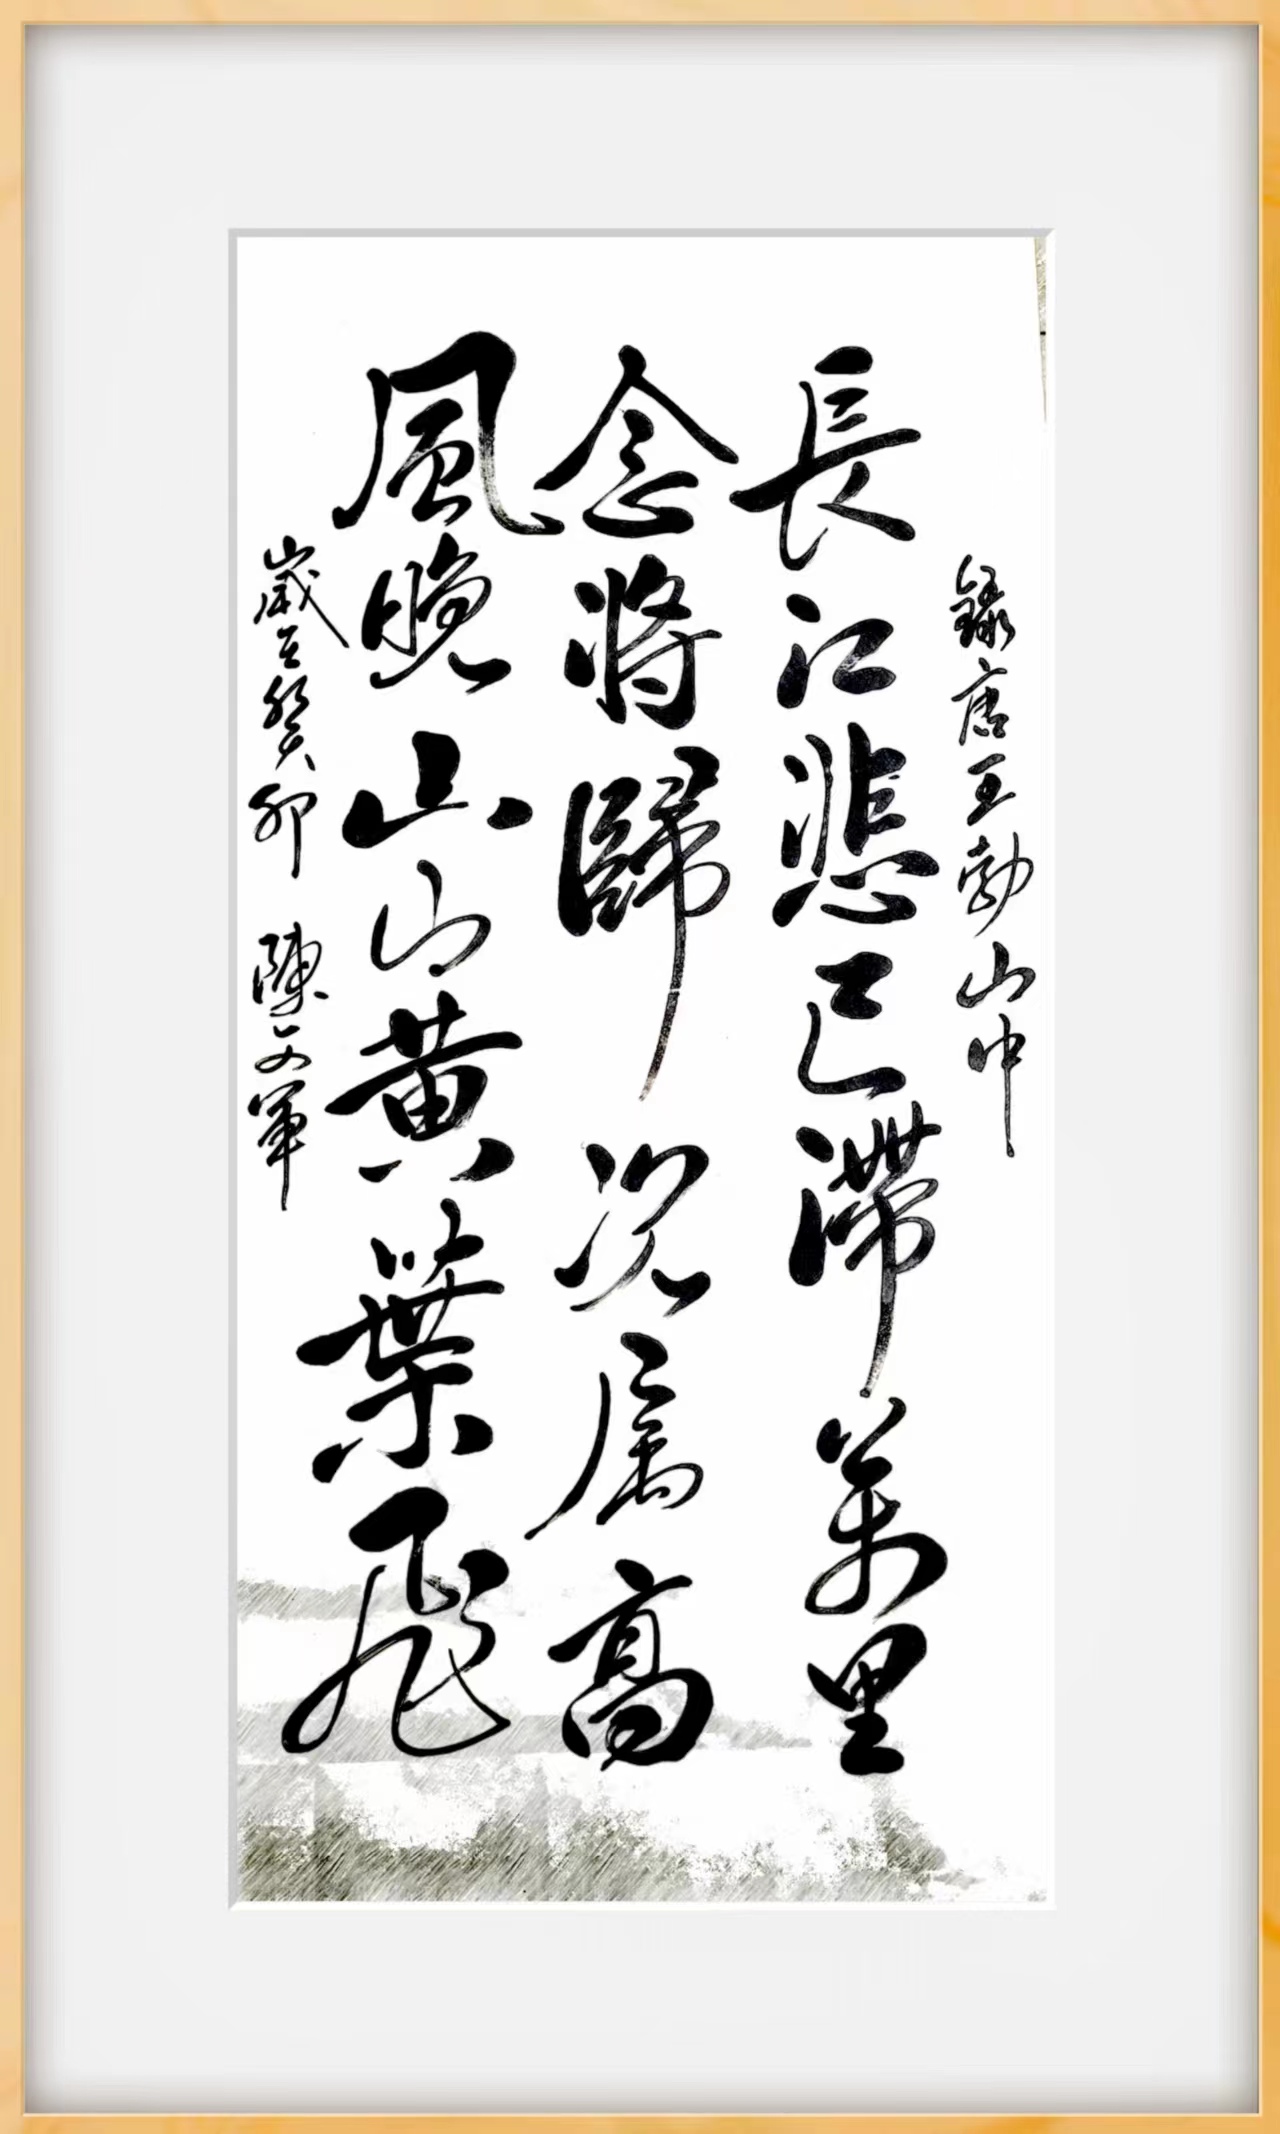 錄唐王勃山中
長江悲已滯萬里
念將歸况属高
風晚山山黃葉飛
歲在癸卯 陳文軍